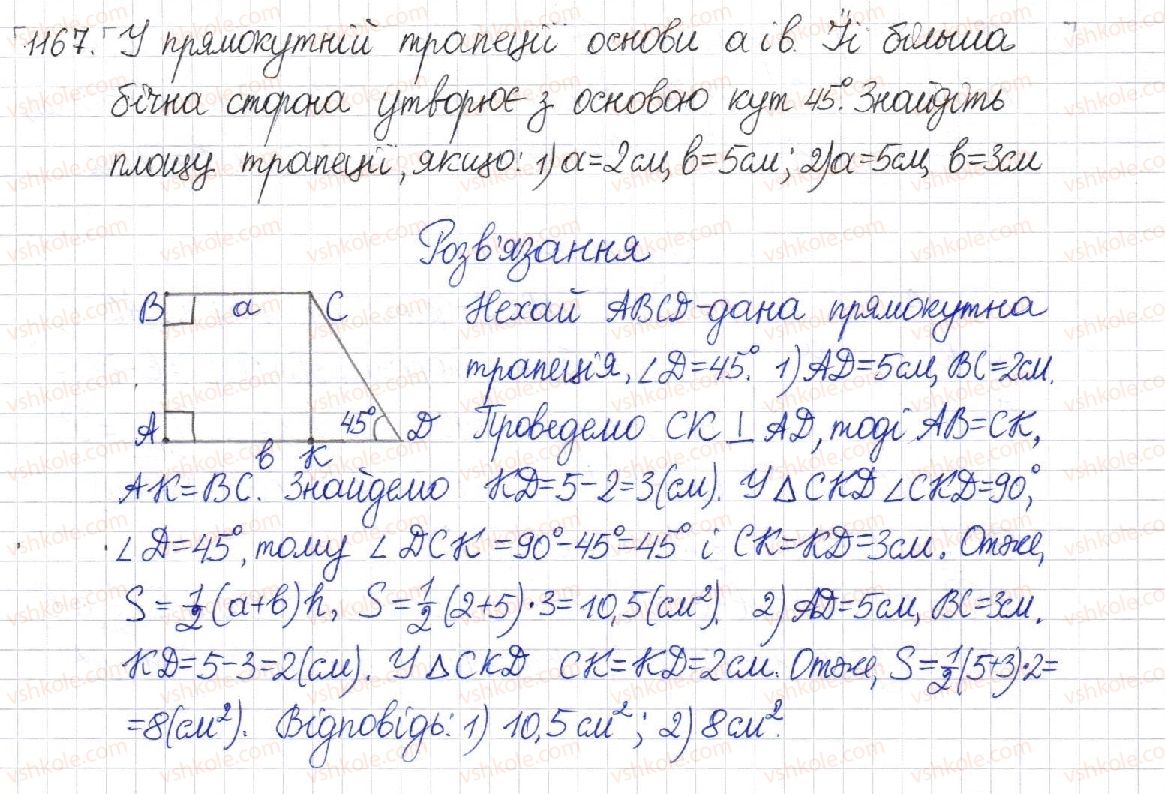 1167. У прямокутній трапеції основи a і b. Її більша
бічна сторона утворює з основою кут 45°. Знайдіть
площу трапеції, якщо: 1) a=2см, b=5см; 2) a=5см, b=3см
Розв'язання
B a C
A b K 45° D
Нехай ABCD-дана прямокутна
трапеція, ∠D=45°. 1) AD=5см, BC=2см.
Проведемо CK⊥AD, тоді AB=CK,
AK=BC. Знайдемо KD=5-2=3(см). У △CKD ∠CKD=90°,
∠D=45°, тому ∠DCK=90°-45°=45° і CK=KD=3см. Отже,
S=1/2(a+b)h, S=1/2(2+5)·3=10,5(см²). 2) AD=5см, BC=3см.
KD=5-3=2(см). У △CKD CK=KD=2см. Отже, S=1/2(5+3)·2=
=8(см²). Відповідь: 1) 10,5см²; 2) 8см².
vshkole.com